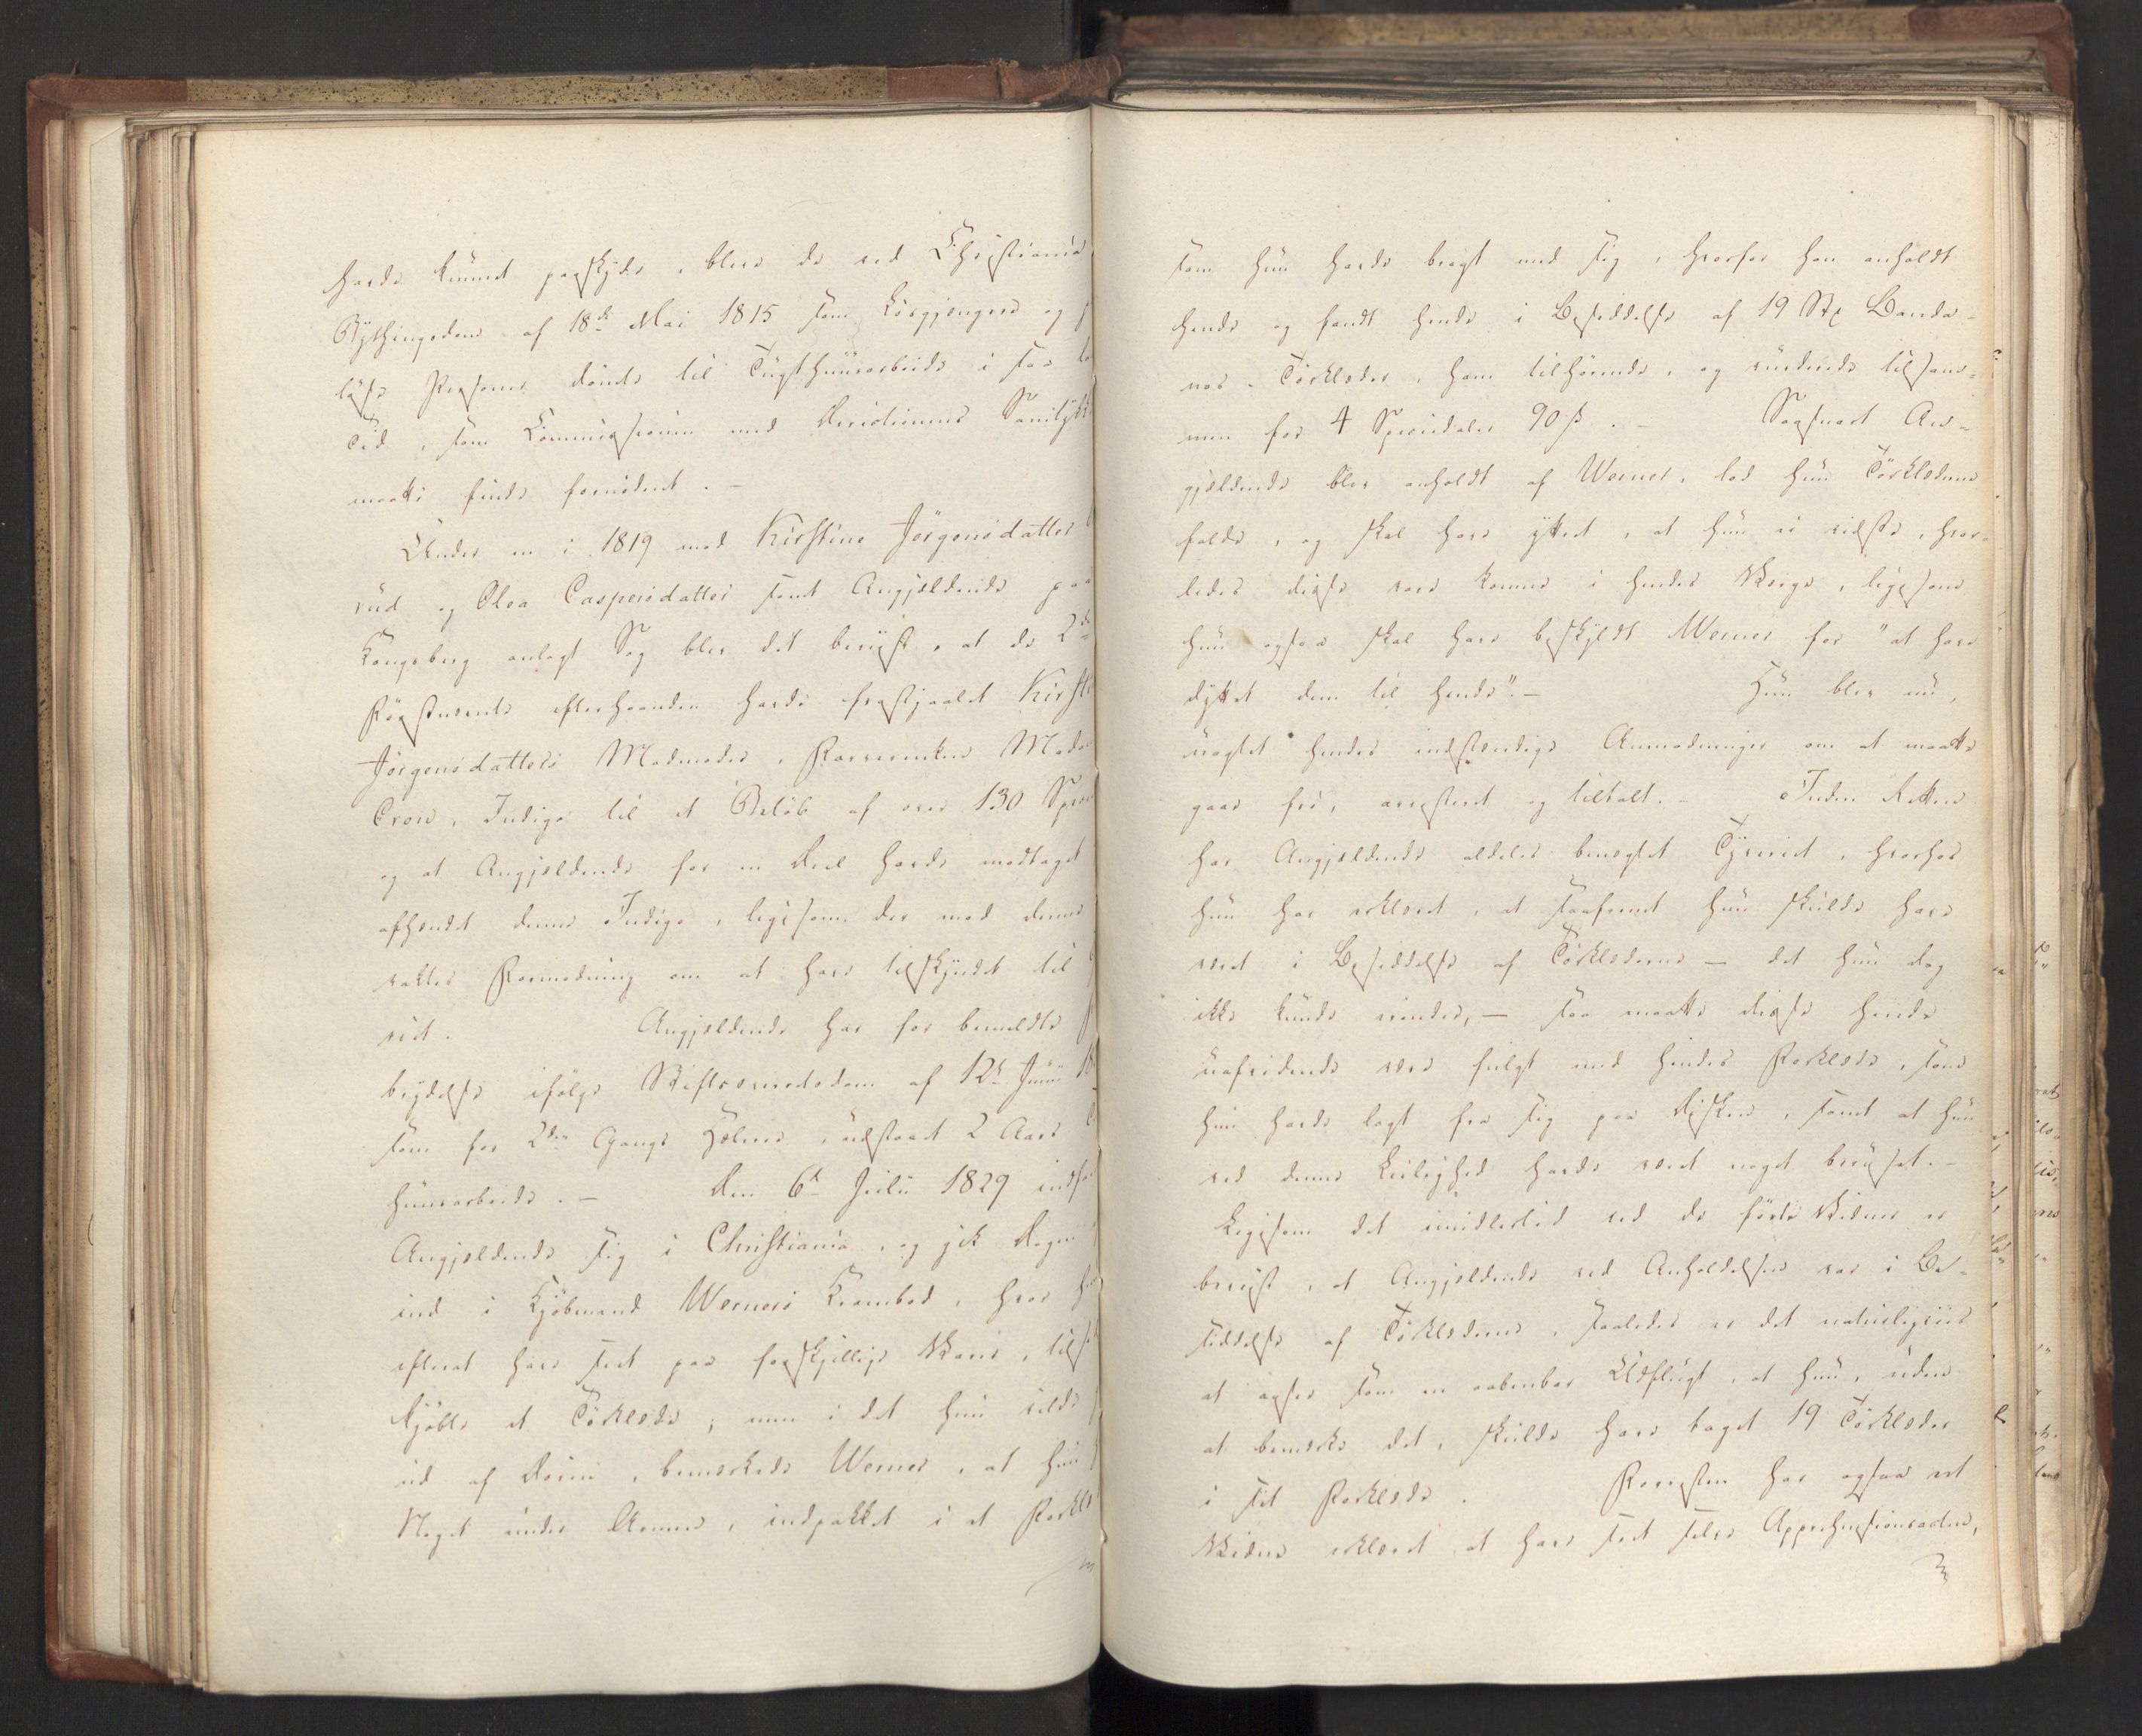 havde kunnet paaskyde, bleve de ved Christiania
Bythingsdom af 18de Mai 1815 som Løsgjengere og
løse Personer dømte til Tugthuusarbeide i saa
Tid, som Commissionen med Directionens Samtykke
maatte finde fornødent. -
Under en i 1819 mod Kirstine Jørgensdatter
rud og Olea Caspersdatter samt Angjældende paa
Kongsberg anlagt Sag blev det beviist, at de 2de
Førstnævnte efterhaanden havde frastjaalet Kirstine
Jørgensdatters Madmoder, Farverenken Madame
Cron, Indigo til et Beløb af over 130 Species
og at Angjældende for en Deel havde modtaget
afhændt denne Indigo, ligesom der mod denne
vaktes Formodning om at have tilskyndet til
riet. Angjældende har for bemeldte
brydelse ifølge Stiftsoverretsdom af 12te Junii
som for 2den Gangs Hæleri, udstaaet 2 Aars
huusarbeide. - Den 6te Julii 1829 indfandt
Angjældende sig i Christiania, og gik Dagen
ind i Kjøbmand Werners Krambod, hvor hun
efterat have seet paa forskjellige Varer, tilsidst
kjøbte et Tørklæde; men i det hun vilde
ud af Døren, bemærkede Werner, at hun
Noget under Armen, indpakket i et Forklæde
som hun havde bragt med sig, hvorfor han anholdt
hende og fandt hende i Besiddelse af 19 Stk Banda-
nos-Tørklæder, ham tilhørende, og vurderede tilsam-
men for 4 Speciedaler 90 ß. - Saasnart An-
gjældende blev anholdt af Werner, lod hun Tørklæderne
falde, og skal have yttret, at hun ei vidste, hvor-
ledes disse vare komne i hendes Værge, ligesom
hun ogsaa skal have beskyldt Werner for "at have
dyttet dem til hende". - Hun blev nu,
uagtet hendes indstændige Anmodninger om at maatte
gaae fri, arresteret og tiltalt. - Inden Retten
har Angjældende aldeles benegtet Tyveriet, hvorhos
hun har erklæret, at saafremt hun skulde have
været i Besiddelse af Tørklæderne - det hun dog
ikke kunde mindes, - saa maatte disse hende
uafvidende være fulgt med hendes Forklæde, som
hun havde lagt fra sig paa Disken, samt at hun
ved denne Leilighed havde været noget beruset. -
Ligesom det imidlertid ved de førte Vidner er
beviist, at Angjældende ved Anholdelsen var i Be-
siddelse af Tørklæderne, saaledes er det naturligviis
at ansee som en aabenbar Udflugt, at hun, uden
at bemærke det, skulde have taget 19 Tørklæder
i sit Forklæde. Foruden har ogsaa eet
Vidne erklæret at have seet selve Apprehensionsacten,